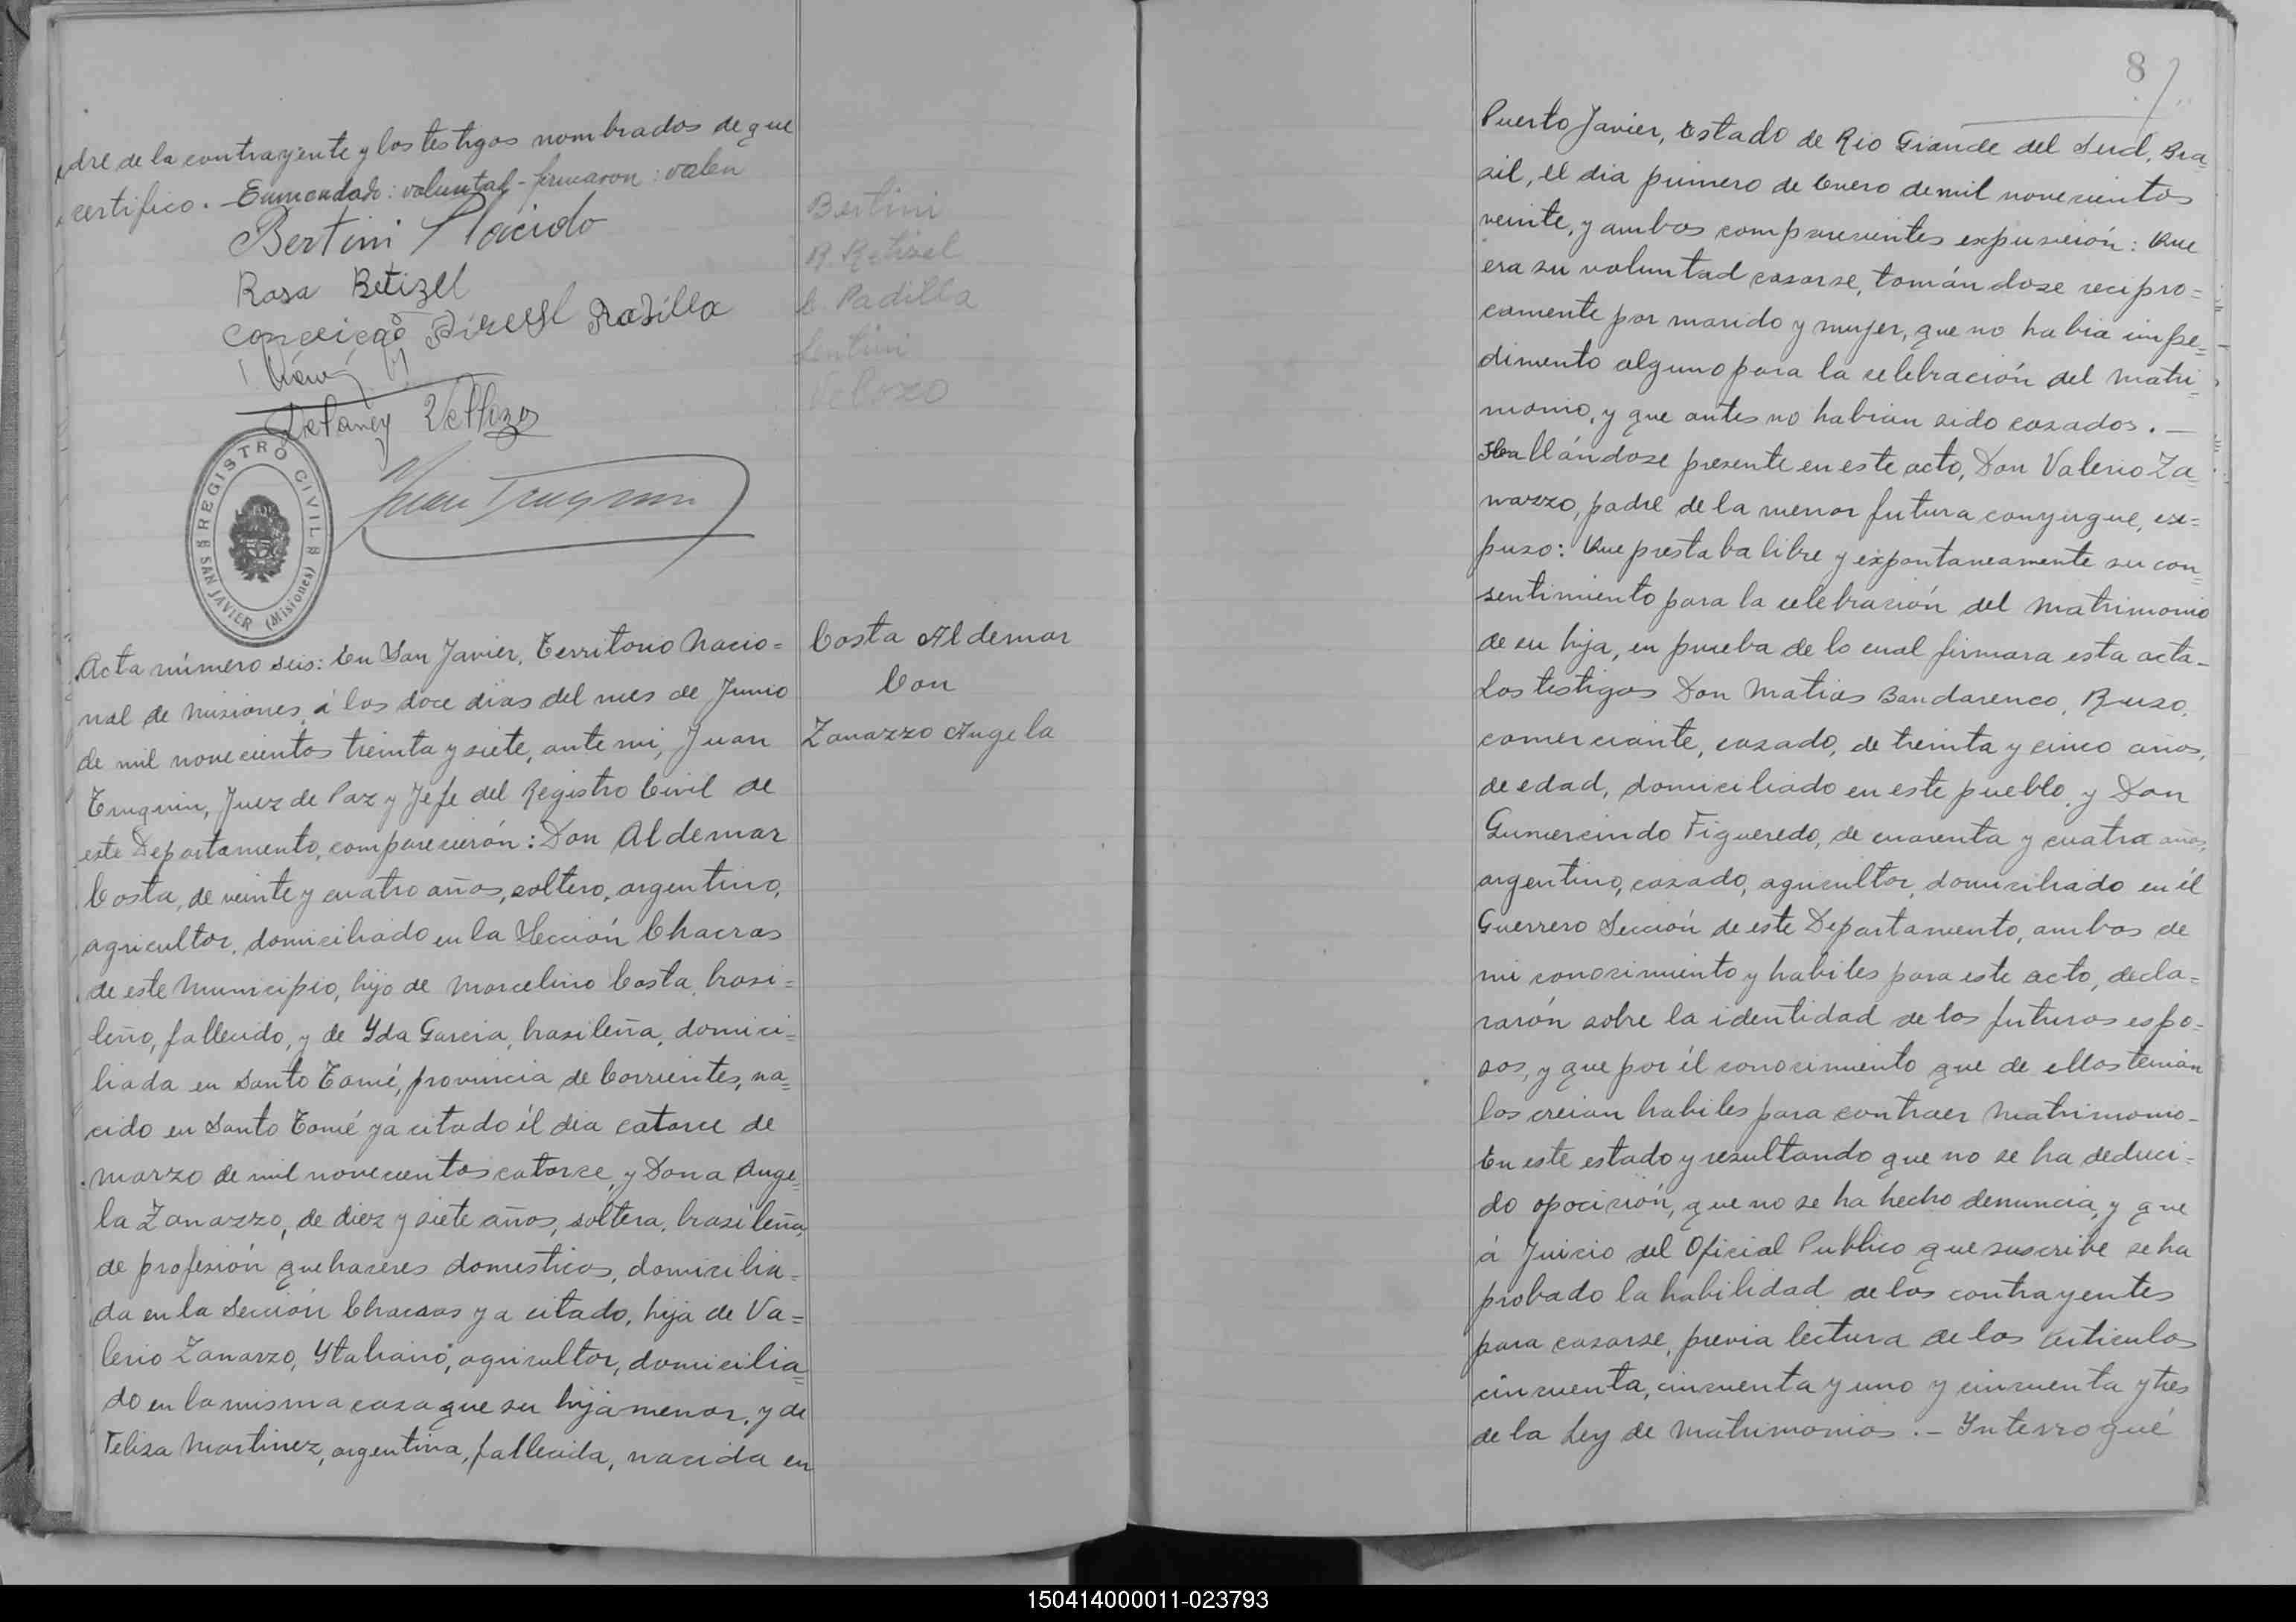 dre de la contrayente y los testigos nombrados de que
certifico. - Enmendado: voluntad - firmaron: valen
Bertini Placido
Rosa Betizel
Conceição Padilla
Vellozo
REGISTRO CIVIL
SAN JAVIER (Misiones)
Bertini
R. Retizel
C. Padilla
Lentini
Velozo
Acta número seis: En San Javier, Territorio Nacio=
nal de Misiones, á los doce dias del mes de Junio
de mil novecientos treinta y siete, ante mi, Juan
Truquin, Juez de Paz y Jefe del Registro Civil de
este Departamento, comparecierón: Don Aldemar
Costa, de veinte y cuatro años, soltero, argentino,
agricultor, domiciliado en la Sección Chacras
de este Municipio, hijo de Marcelino Costa, brasi=
leño, fallecido, y de Yda Garcia, brasileña, domici=
liada en Santo Tomé, provincia de Corrientes, na=
cido en Santo Tomé ya citado él dia catorce de
marzo de mil novecientos catorce, y Dona Ange=
la Zanazzo, de diez y siete años, soltera, brasileña,
de profesión quehaceres domesticos, domicilia=
da en la Sección Chacras ya citado, hija de Va=
lerio Zanazzo, Ytaliano, agricultor, domicilia=
do en la misma casa que su hija menor, y de
Feliza Martinez, argentina, fallecida, nacida en
Costa Aldemar
Con
Zanazzo Angela
8
Puerto Javier, Estado de Rio Grande del Sud, Bra
sil, él dia primero de Enero de mil novecientos
veinte, y ambos comparecientes expusierón: Que
era su voluntad casarse, tomándose recipro=
camente por marido y mujer, que no habia impe=
dimento alguno para la celebración del matri=
monio, y que antes no habian sido casados. —
Hallándose presente en este acto, Don Valerio Za=
nazzo, padre de la menor futura conyugue, ex=
puso: Que prestaba libre y expontaneamente su con=
sentimiento para la celebración del matrimonio
de su hija, en prueba de lo cual firmara esta acta -
Los testigos Don Matias Bandarenco, Ruso,
comerciante, casado, de treinta y cinco años,
de edad, domiciliado en este pueblo, y Don
Gumercindo Figueredo, de cuarenta y cuatro años,
argentino, casado, agricultor, domiciliado en él
Guerrero Sección de este Departamento, ambos de
mi conocimiento y habiles para este acto, decla=
rarón sobre la identidad de los futuros espo=
sos, y que por él conocimiento que de ellos tenian
los creian habiles para contraer matrimonio -
En este estado y resultando que no se ha deduci=
do opocición, que no se ha hecho denuncia, y que
á Juicio del Oficial Publico que suscribe se ha
probado la habilidad de los contrayentes
para casarse, previa lectura de los articulos
cincuenta, cincuenta y uno y cincuenta y tres
de la Ley de Matrimonios. - Ynterrogué
150414000011-023793